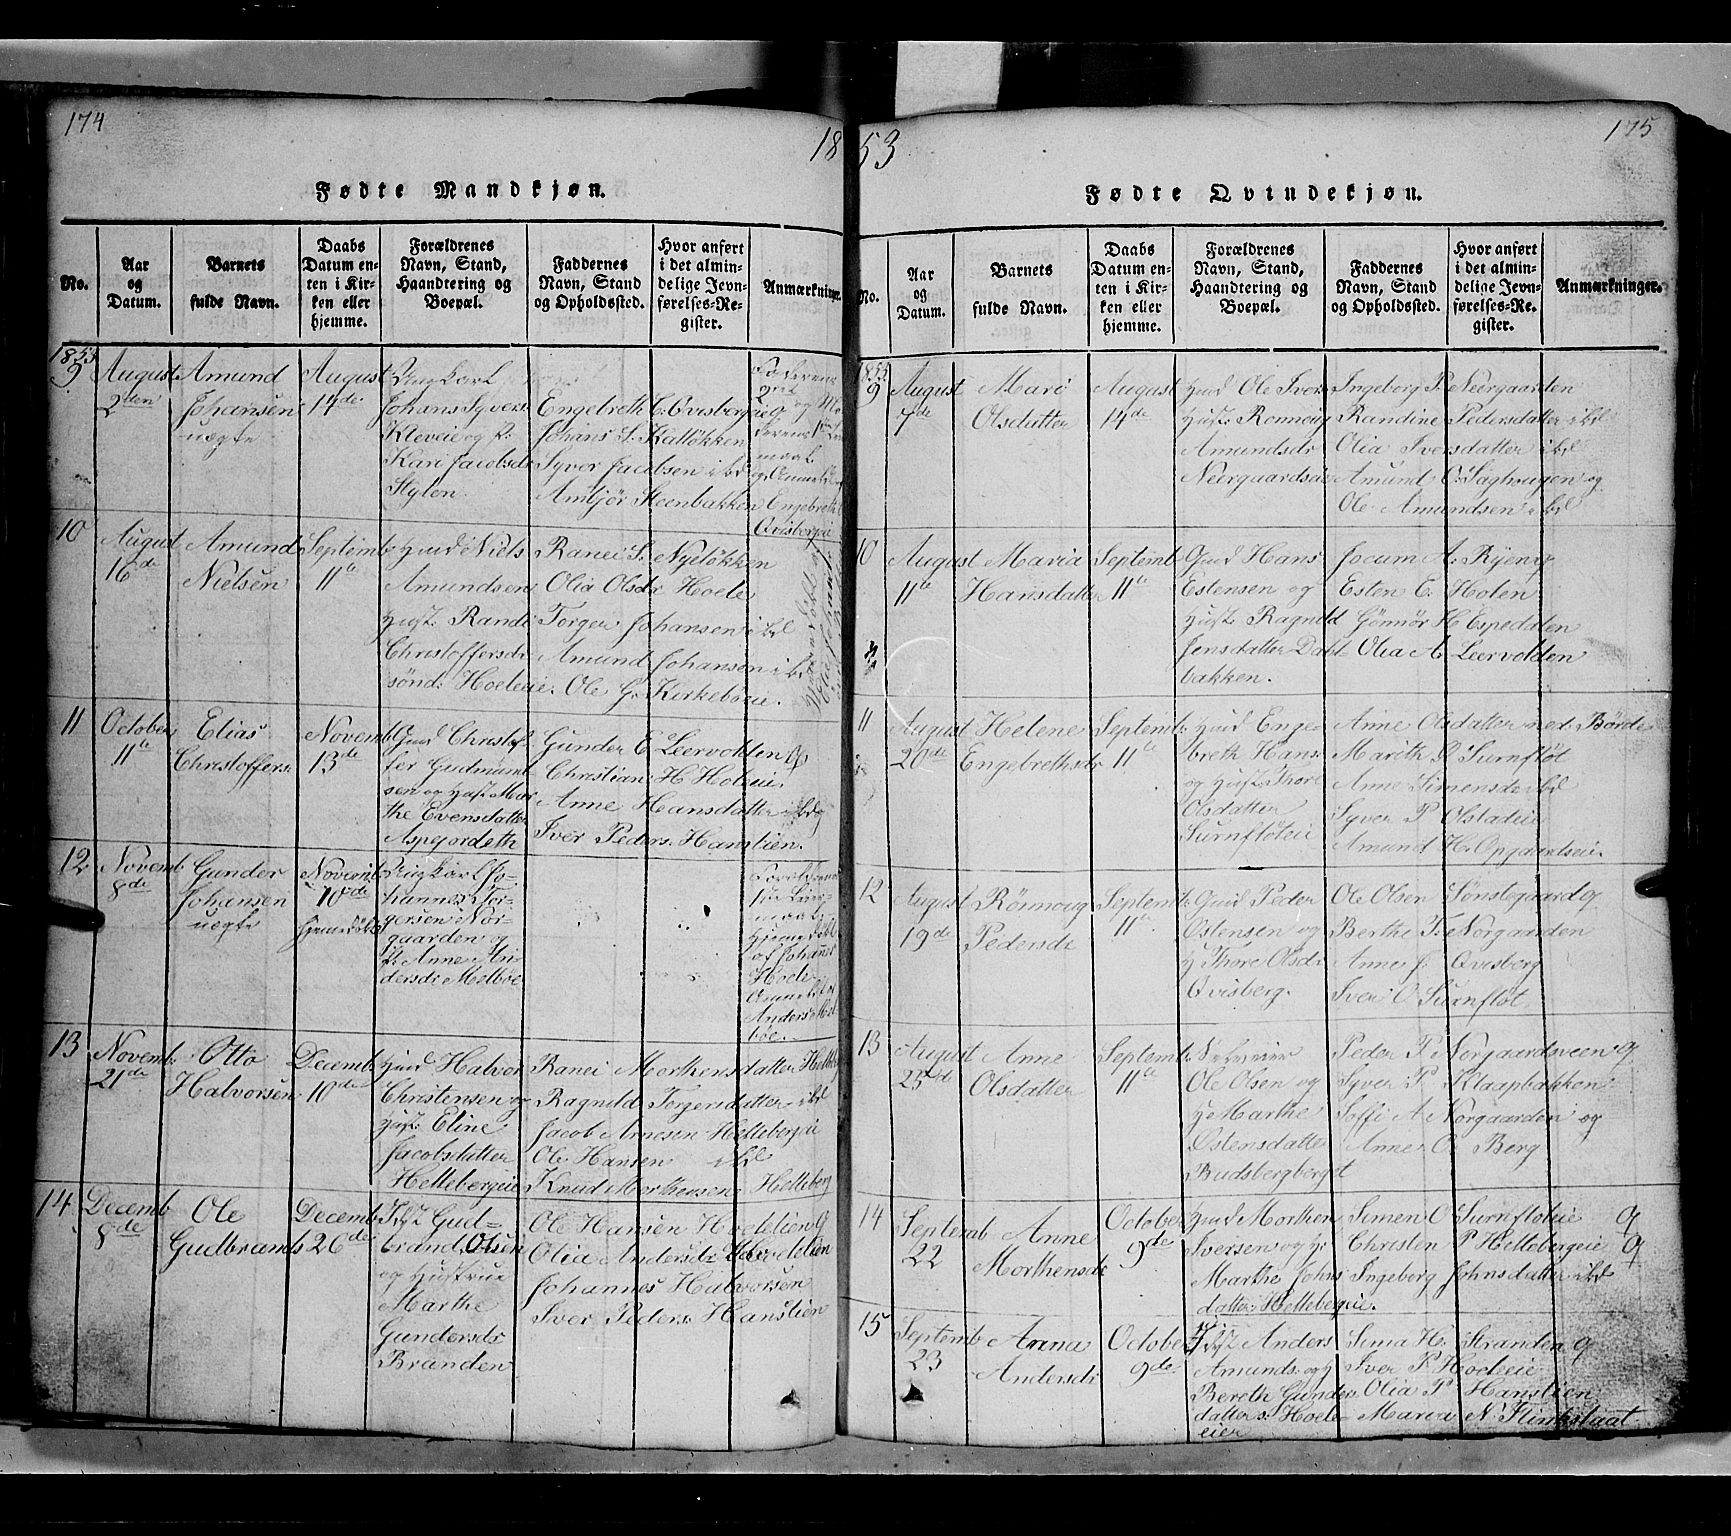 174
18
Fødte Mandkjøn.
No.
Aar
og
Datum.
Barnets
fulde Navn.
Daabs
Datum en-
ten i Kir-
ken eller
hjemme.
Forældrenes
Navn, Stand,
Haandtering og
Boepæl.
Faddernes
Navn, Stand
og Opholdssted.
Hvor anført
i det almin-
delige Jevn-
førelses-Re-
gister.
Anmærkninger.
1853
9
August
2den
Amund
Johansen
uægte
August
14de
Ungkarl
Johans Syvers
Kleveie og P.
Kari Jacobsdr
Stylen
Engebreth C. Qvisbergeie
Johans S. Kalløkken
Syver Jacobsen ibd
Ambjør Steenbakken
Engebreth
Qvisbergeie
10
August
16de
Amund
Nielsen
Septemb
11te
Hmd Niels
Amundsen
Hust. Randi
Christoffersdr
sønd: Hoeleie
Ranei S. Nyeløkken
Olia Olsdr Hoele
Torger Johansen ibd
Amund Johansen ibd
Ole G. Kirkeboeie.
11
October
11te
Elias
Christoffers.
Novemb
13de
Gmd Christof-
fer Gudmund-
sen og Hust. Mar-
the Evensdatter
Aspejordeth
Gunder E Leervolden
Christian H. Holeie
Anne Hansdatter ibd
Iver Peders. Hanslien.
12
Novemb
8de
Gunder
Johansen
uægte
Novemb
10de
hjemmedøbt
Ungkarl Jo-
hannes Tor-
gersen Nor-
gaarden og
P. Anne An-
dersdr Melbøe
Forældrenes
1ste Leier-
maal,
hjemmedøbt
af Johannes
Hoele
Anmeldt af
Anders Mel-
bøe.
13
Novemb.
21de
Otto
Halvorsen
Decemb
10de
Hmd Halvor
Christensen og
Hust. Eline
Jacobsdatter
Hellebergeie
Ranei Morthensdatter Helleb
Ragnild Torgersdatter ibd
Jacob Arnesen Hellebergeie
Ole Hansen ibd
Knud Morthensen Helleberg
14
Decemb
8de
Ole
Gudbrands
Decemb
26de
Inds. Gud-
brand Olsen
og Hustrue
Marthe
Gundersdr
Branden
Ole Hansen Hoelelien
Olia Andersdr Hoelelien
Johannes Halvorsen
Iver Peders. Hanslien
53
175
Fødte Qvindekjøn.
No.
Aar
og
Datum.
Barnets
fulde Navn.
Daabs
Datum en-
ten i Kir-
ken eller
hjemme.
Forældrenes
Navn, Stand,
Haandtering og
Boepæl.
Faddernes
Navn, Stand
og Opholdsted.
Hvor anført
i det almin-
delige Jevn-
førelses-Re-
gister.
Anmærkninger.
1853
9
August
7de
Mari
Olsdatter
August
14de
Hmd Ole Ivers
Hust. Rønnoug
Amundsdr
Neergaardseie
Ingeborg P. Neergaarden
Randine Pedersdatter ibd
Olia Iversdatter ibd
Amund O. Saghougen og
Ole Amundsen ibd
10
August
11te
Maria
Hansdatter
Septemb
11te
Gmd Hans
Estensen og
Hust. Ragnild
Jensdatter Dahl-
bakken.
Jocum A. Ryeng
Esten E. Holen
Gønnør H Espedalen
Olia A. Leervolden
11
August
20de
Helene
Engebrethsdr
Septemb.
11te
Hmd Enge-
breth Hans-
og Hust. Thore
Olsdatter
Surnfløteie
Anne Olsdatter ned: Børde
Marith P Surnfløt
Anne Simensdr ibd
Syver P Olstadeie
Amund H. Opgardseie.
12
August
19de
Rønnoug
Pedersdr
Septemb
11te
Gmd Peder
Østensen og
H Thore Olsdr
Qvisberg.
Ole Olsen Sønstegaard q
Berthe T. Norgaarden
Anne J. Qvisberg
Iver O Surnfløt
13
August
25de
Anne
Olsdatter
Septemb.
11te
Ole Olsen og
H Marthe
Østensdatter
Budsbergberget
Peder P Norgaardsveen q
Syver P Klaapbakken
Soffi A Norgaarden og
Anne O Berg
14
Septemb
22
Anne
Morthensdr
October
9de
Hmd Morthen
Iversen og H:
Marthe Johns
datter Hellebergeie.
Simen O Surnfløteie q
Christen P Hellebergeie q
Ingeborg Johnsdatter ibd
15
Septemb
23
Anna
Andersdr
October
9de
Inds Anders
Amunds. og H
Bereth Gunders
datter s: Hoele-
eier
Sima H. Stranden q
Iver P Hoeleeie
Olia P Hanslien
Maria N Flinkstaat